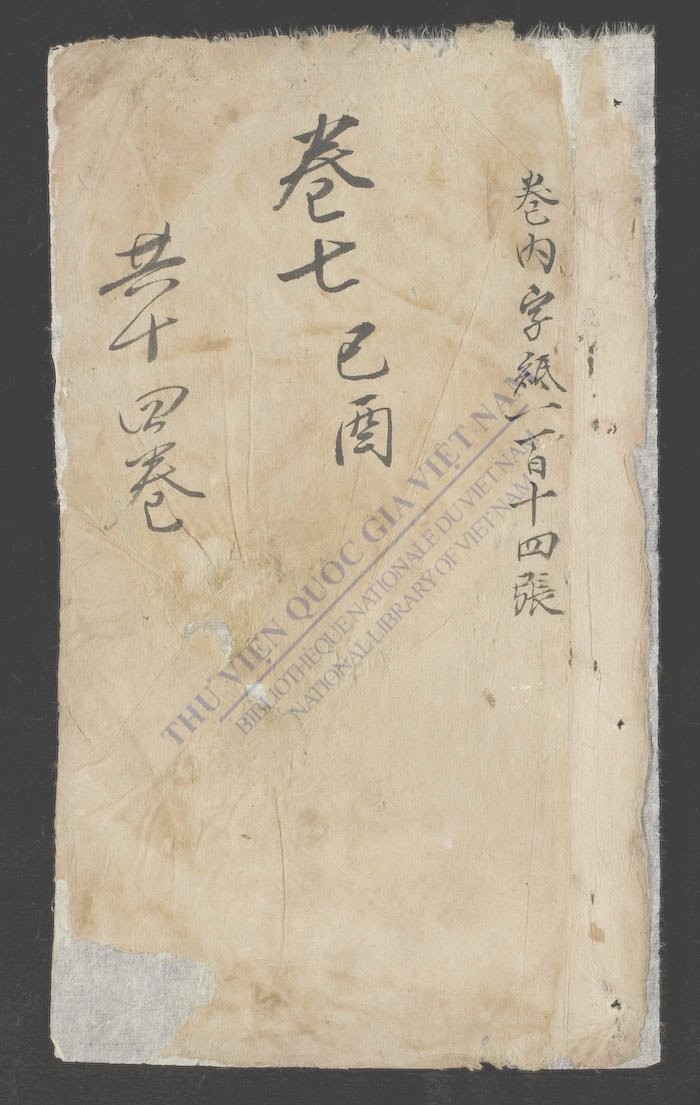 卷内字紙一百十四張
卷七己酉
共十四卷
THƯ VIỆN QUỐC GIA VIỆT NAM
BIBLIOTHÈQUE NATIONALE DU VIETNAM
NATIONAL LIBRARY OF VIETNAM